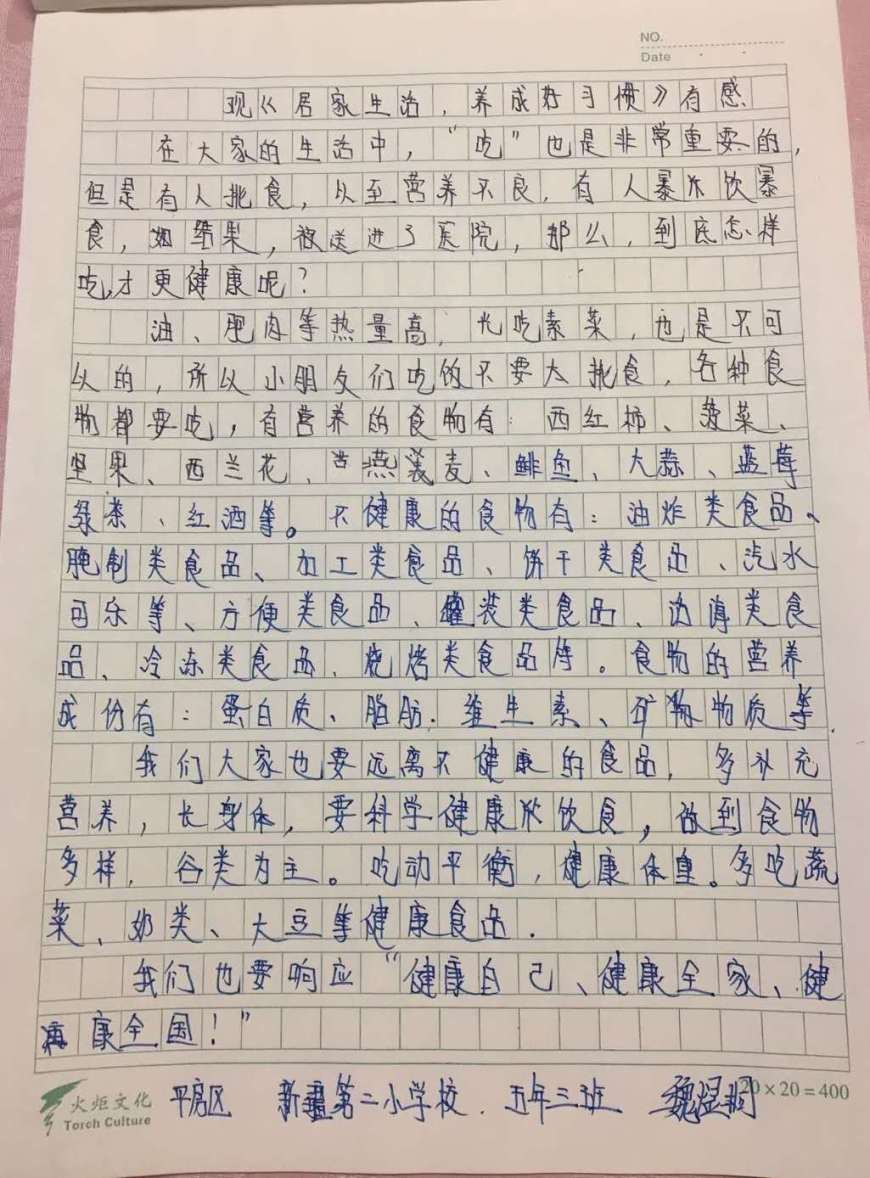 NO.
Date
观《居家生活,养成好习惯》有感
在大家的生活中,“吃”也是非常重要的,
但是有人挑食,以至营养不良,有人暴饮暴
食,如结果,被送进了医院,那么,到底怎样
吃,才更健康呢?
油、肥肉等热量高,光吃素菜,也是不可
以的,所以小朋友们吃饭不要太挑食,各种食
物都要吃,有营养的食物有:西红柿、菠菜、
坚果、西兰花、燕麦、鲱鱼、大蒜、蓝莓
绿茶、红酒等。不健康的食物有:油炸类食品、
腌制类食品、加工类食品、饼干类食品、汽水
可乐等、方便类食品、罐装类食品、类食
品、冷冻类食品、烧烤类食品等。食物的营养
成份有:蛋白质、脂肪.维生素、矿物质等.
我们大家也要远离不健康的食品,多补充
营养,长身体,要科学健康饮食,做到食物
多样,谷类为主。吃动平衡,健康体重。多吃蔬
菜、奶类、大豆等健康食品.
我们也要响应“健康自己、健康全家、健
康全国!”
火炬文化
Torch Culture
平房区 新疆第二小学校.五年三班 魏煜
20×20=400